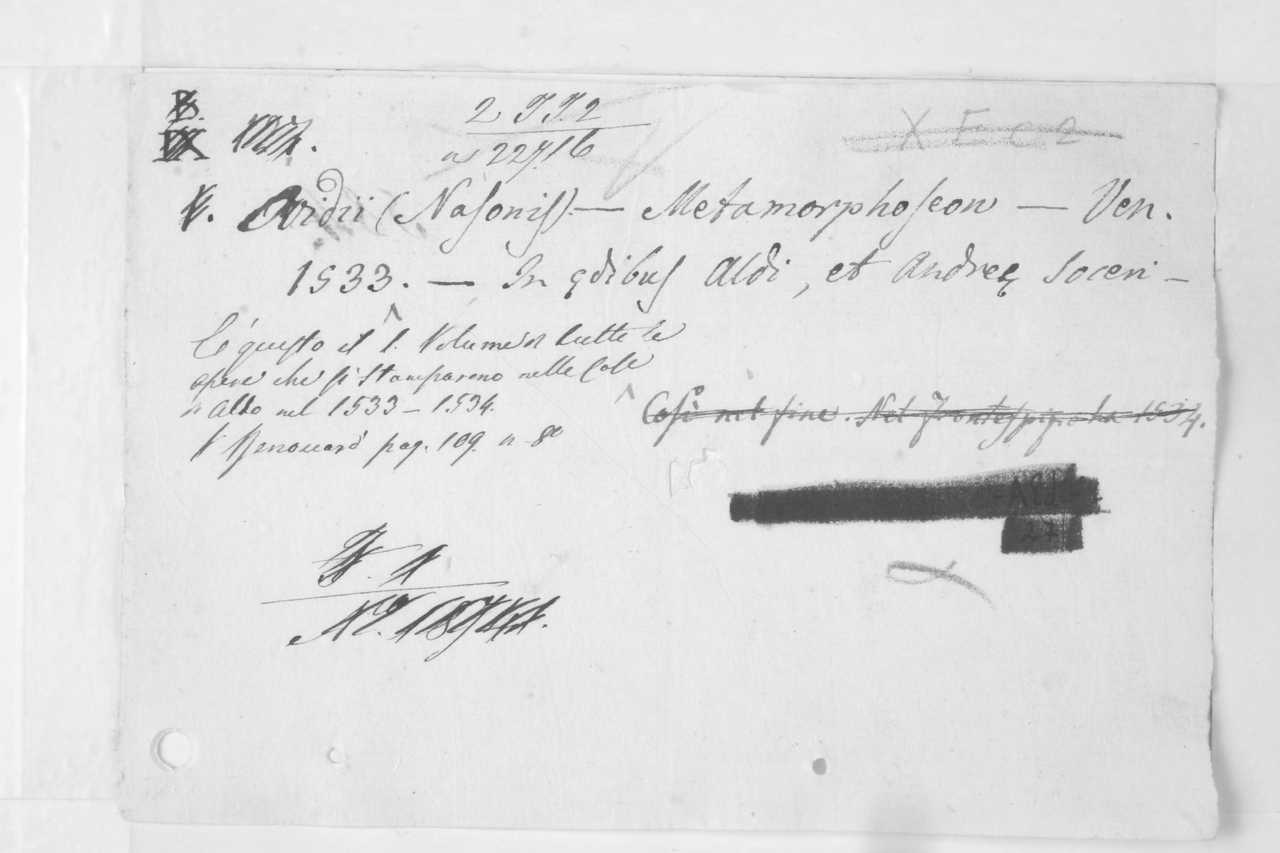 2 T.T.2
n 22716
X E c 2
V. Ovidii (Nasonis) — Metamorphoseon — Ven.
1533. — In ędibus Aldi, et Andreę Soceri —
È questo il 1. Volume di tutte le
opere che si stamparono nelle Case
di Aldo nel 1533–1534.
V Renouard pag. 109. n 8º
Così nel fine. Nel frontespizio ha 1534.
Nº. 18744.